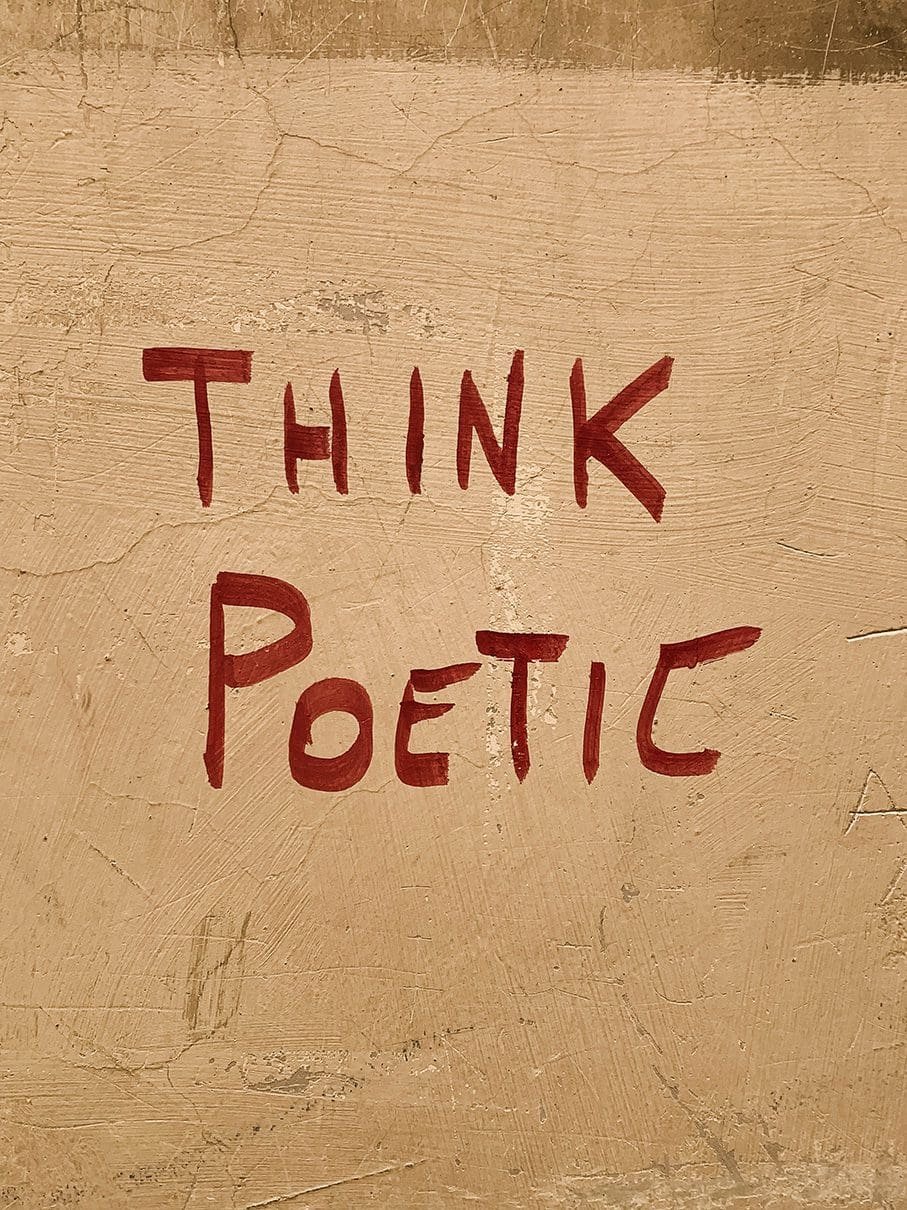 THINK
POETIC
A